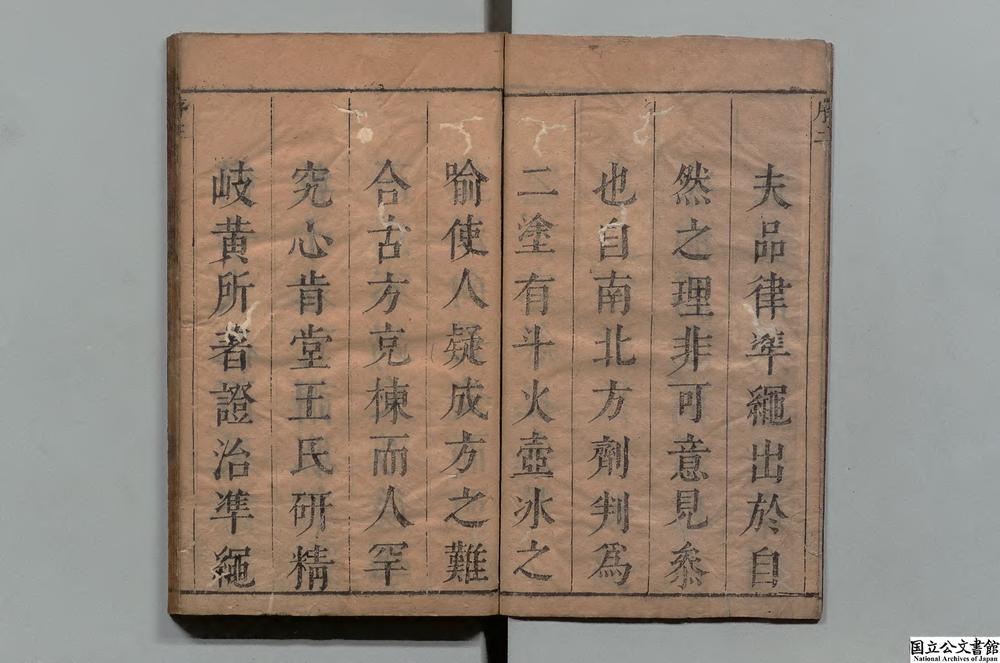 序二
夫品律準繩出於自
然之理非可意見叅
也自南北方劑判爲
二塗有斗火壺冰之
喻使人疑成方之難
合古方克棟而人罕
究心肯堂王氏研精
岐黃所著證治準繩
国立公文書館
National Archives of Japan